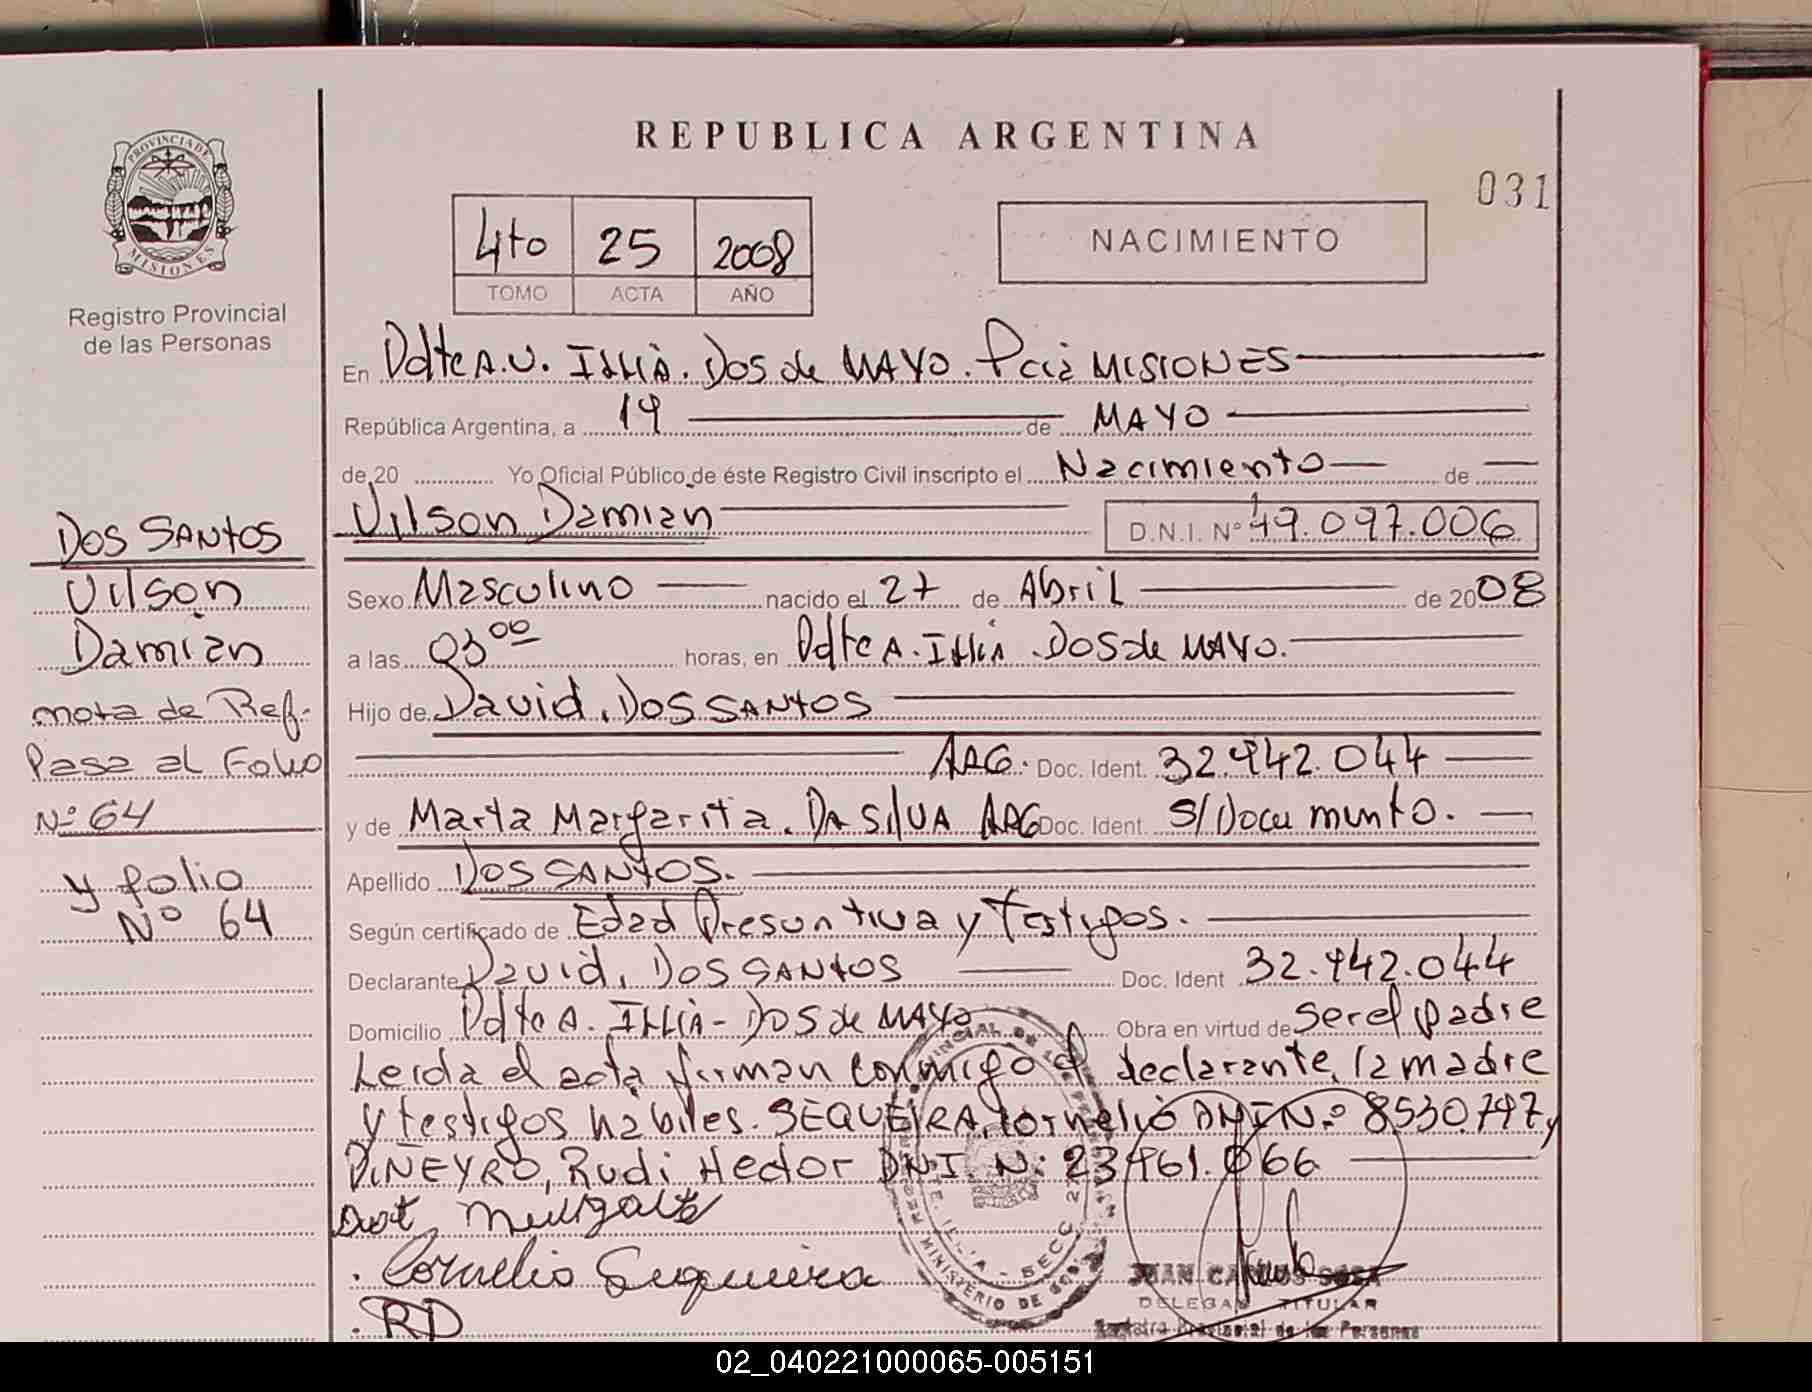 REPUBLICA ARGENTINA
031
PROVINCIA DE
MISIONES
Registro Provincial
de las Personas
4to 25 2008
TOMO ACTA AÑO
NACIMIENTO
En Pdte A.U. ILLIA. Dos de MAYO. Pcia MISIONES
República Argentina, a 19 de MAYO
de 20 Yo Oficial Público de éste Registro Civil inscripto el Nacimiento de
Vilson Damian D.N.I. Nº 49.097.006
Sexo Masculino nacido el 27 de Abril de 2008
a las 03 00 horas, en Pdte A. Illia. Dos de MAYO.
Hijo de David. DOS SANTOS
ARG. Doc. Ident. 32.942.044
y de Marta Margarita. DA SILVA ARG Doc. Ident. S/Documento.
Apellido DOS SANTOS.
Según certificado de Edad Presuntiva y Testigos.
Declarante David. DOS SANTOS Doc. Ident 32.942.044
Domicilio Pdte A. ILLIA - Dos de MAYO Obra en virtud de ser el padre
Leida el acta firman conmigo el declarante, la madre
y testigos hàbiles. SEQUEIRA, Cornelio DNI Nº 8530.797 y
PIÑEYRO, Rudi Hector DNI Nº 23961.066
Cornelio Sequeira
RD
JUAN CARLOS SOSA
DELEGADO TITULAR
Registro Provincial de las Personas
DOS SANTOS
Vilson
Damian
nota de Ref.
Pasa al Folio
Nº 64
y folio
Nº 64
02_040221000065-005151